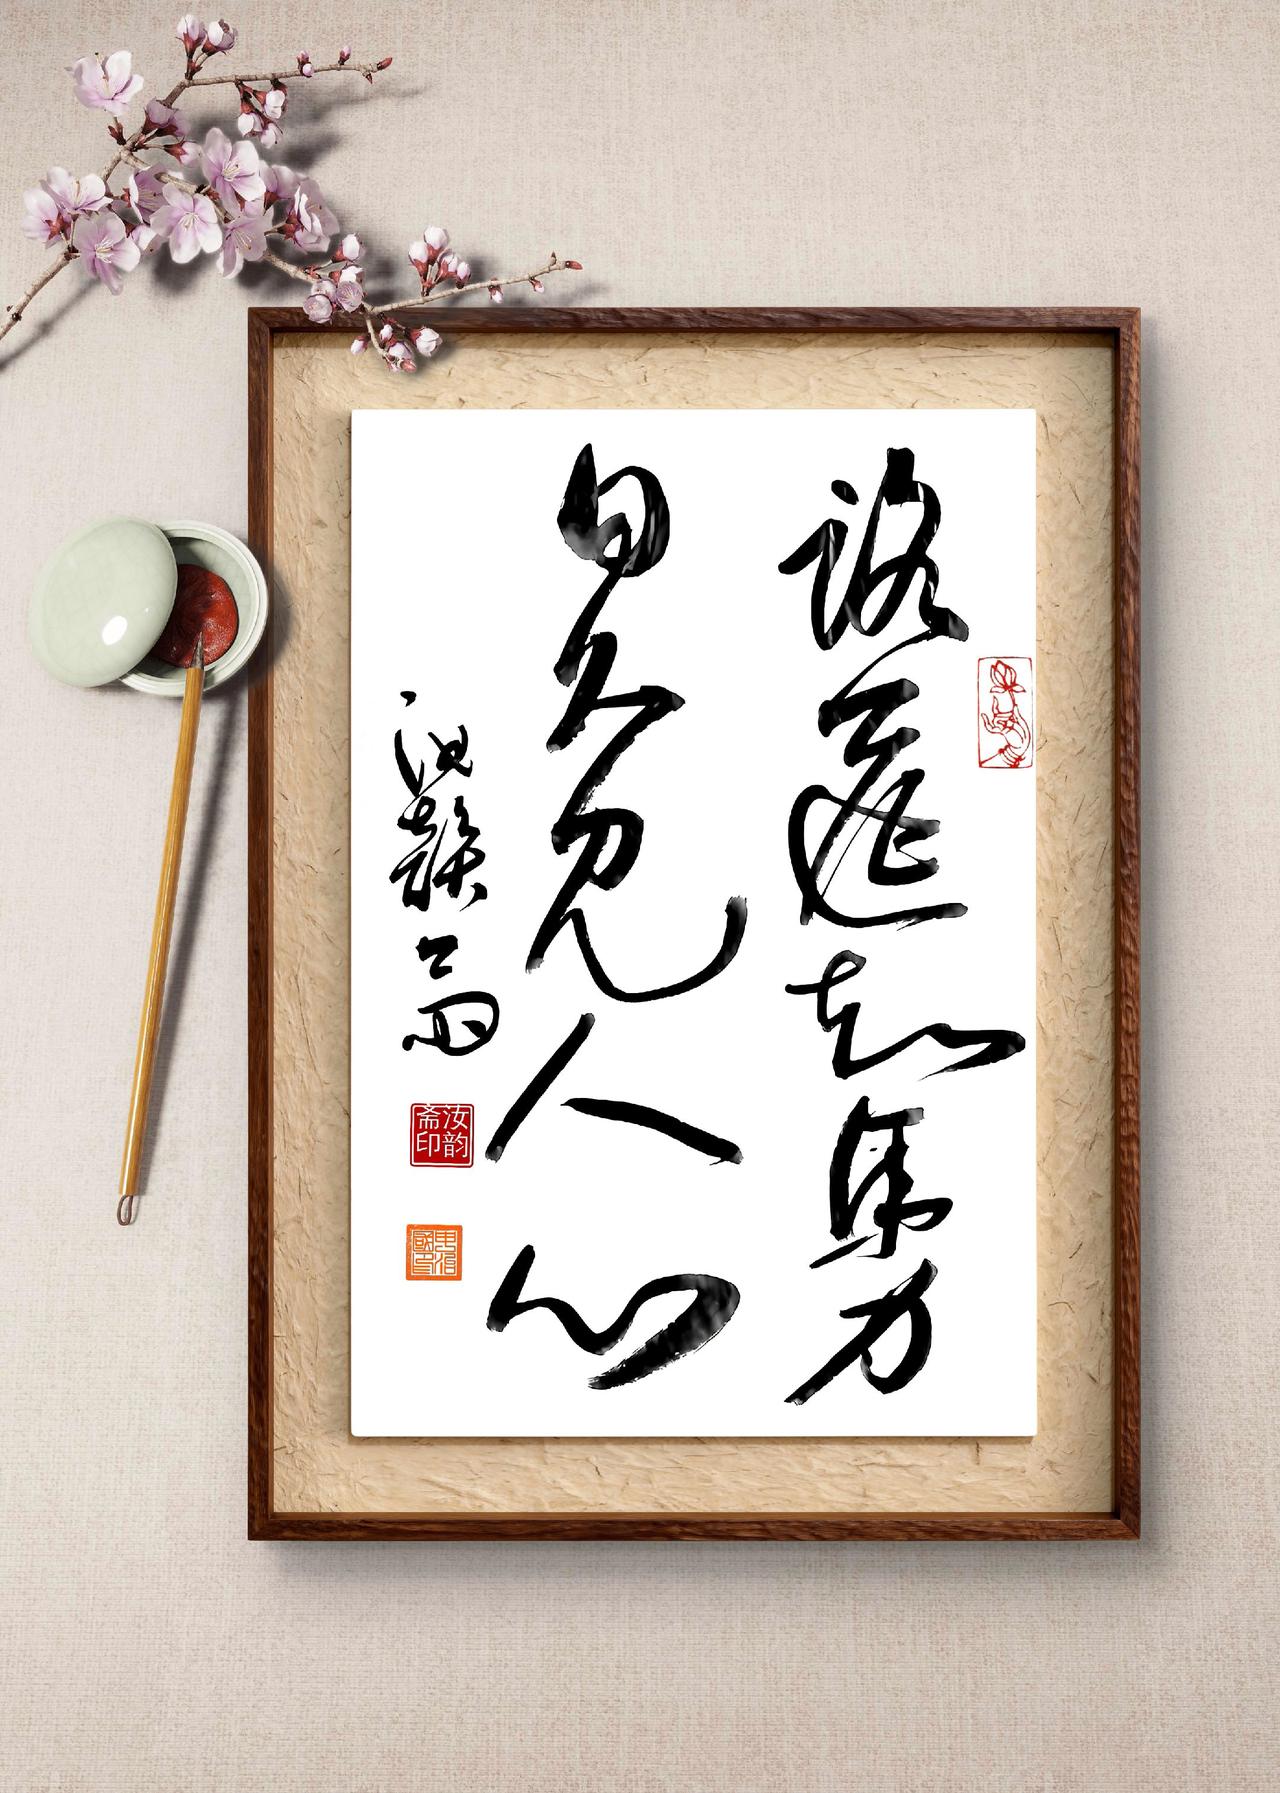 路遥知馬力
日久见人心
汝韵斋
汝韵
斋印